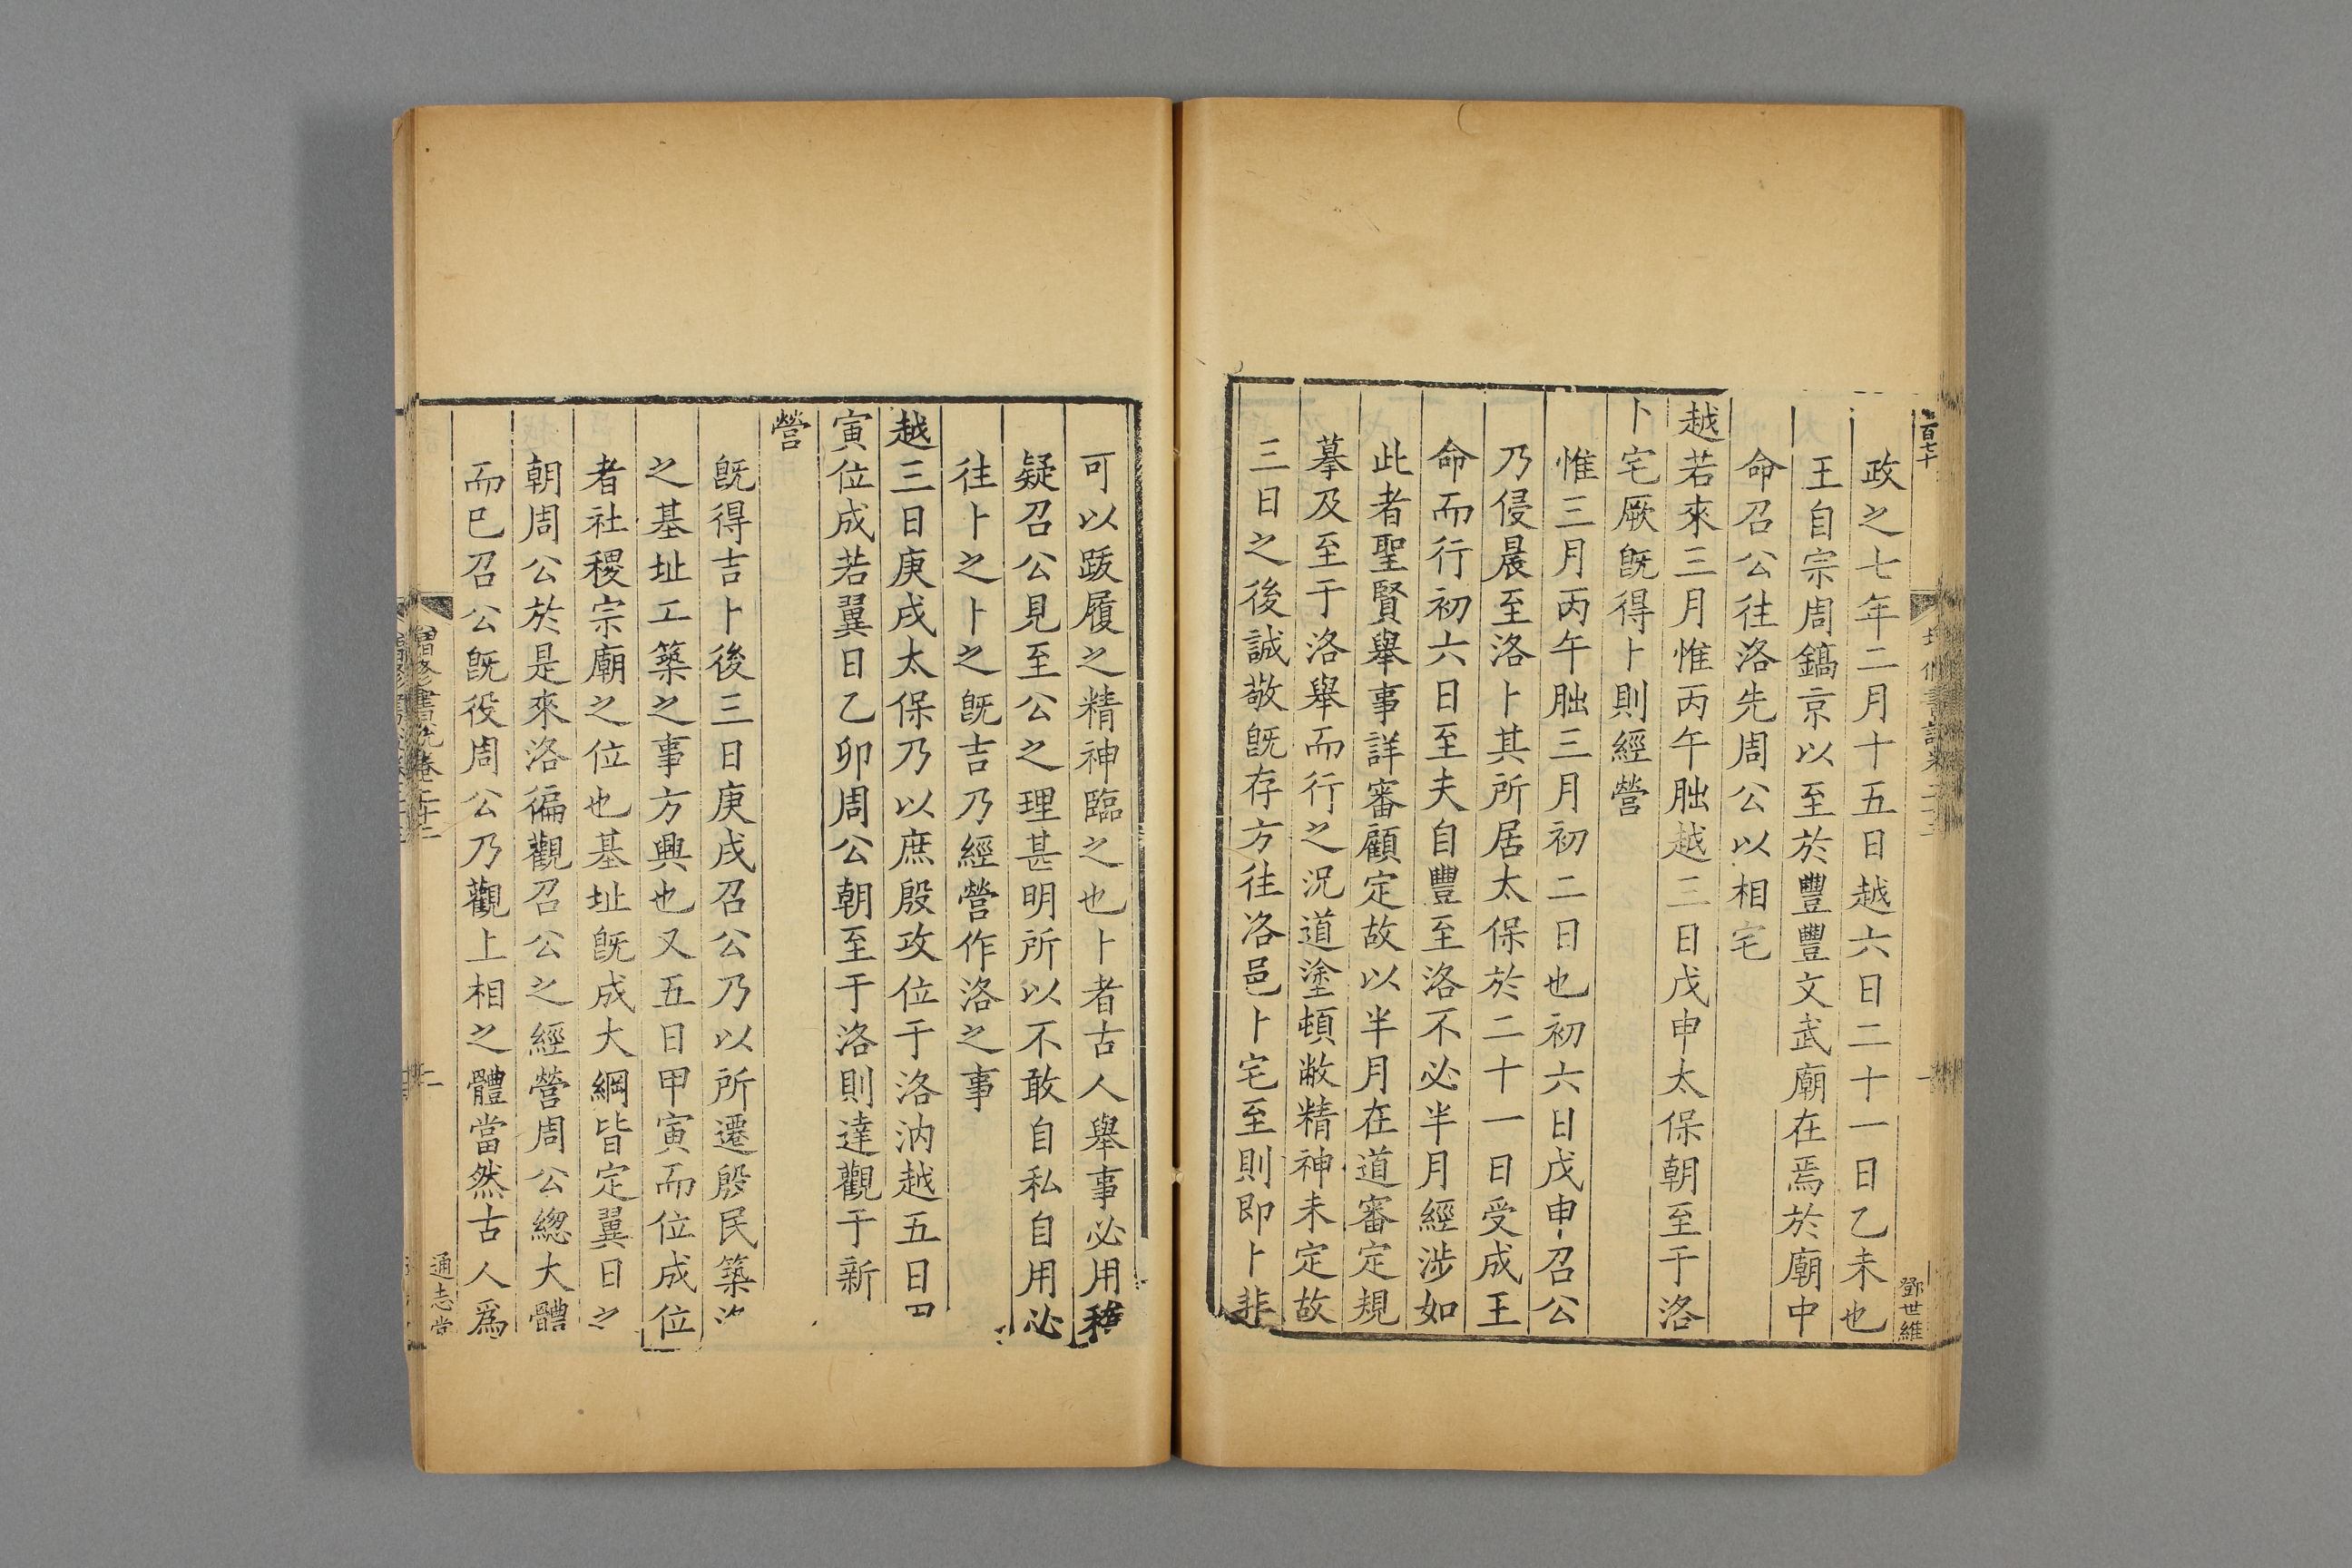 百七十
鄧世維
政之七年二月十五日越六日二十一日乙未也
王自宗周鎬京以至於豐豐文武廟在焉於廟中
命召公往洛先周公以相宅
越若來三月惟丙午朏越三日戊申太保朝至于洛
卜宅厥旣得卜則經營
惟三月丙午朏三月初二日也初六日戊申召公
乃侵晨至洛卜其所居太保於二十一日受成王
命而行初六日至夫自豐至洛不必半月經涉如
此者聖賢舉事詳審顧定故以半月在道審定規
摹及至于洛舉而行之況道塗頓敝精神未定故
三日之後誠敬旣存方往洛邑卜宅至則即卜非
可以踐履之精神臨之也卜者古人舉事必用稽
疑召公見至公之理甚明所以不敢自私自用必
往卜之卜之旣吉乃經營作洛之事
越三日庚戌太保乃以庶殷攻位于洛汭越五日甲
寅位成若翼日乙卯周公朝至于洛則達觀于新
營
旣得吉卜後三日庚戌召公乃以所遷殷民築
之基址工築之事方興也又五日甲寅而位成位
者社稷宗廟之位也基址旣成大綱皆定翼日之
朝周公於是來洛徧觀召公之經營周公總大體
而巳召公旣役周公乃觀上相之體當然古人爲
增修書說卷二十二
二
通志堂